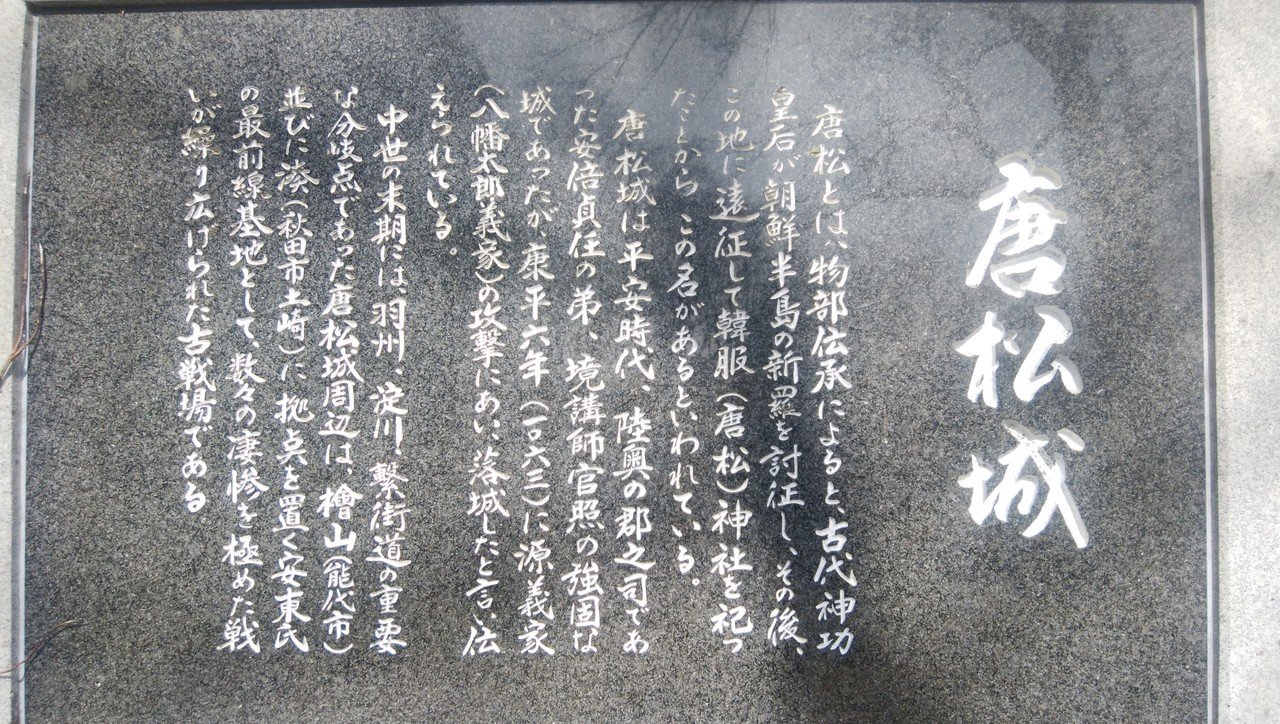 唐松城
唐松とは、物部伝承によると、古代神功
皇后が朝鮮半島の新羅を討征し、その後、
この地に遠征して韓服（唐松）神社を祀っ
たことから この名があるといわれている。
唐松城は平安時代、陸奥の郡之司であ
った安倍貞任の弟、境講師官照の強固な
城であったが、康平六年（一〇六三）に源義家
（八幡太郎義家）の攻撃にあい、落城したと言い伝
えられている。
中世の末期には、羽州、淀川、繋街道の重要
な分岐点であった唐松城周辺は、檜山（能代市）
並びに湊（秋田市土崎）に拠点を置く安東氏
の最前線基地として、数々の凄惨を極めた戦
いが繰り広げられた古戦場である。